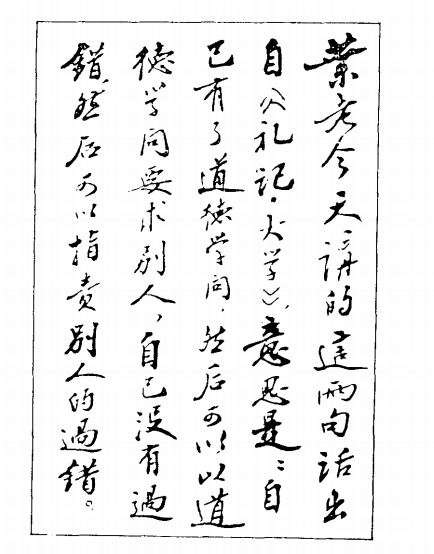 叶老今天講的這两句话出
自《礼记·大学》，意思是：自
己有了道德学问，然后可以以道
德学问要求别人，自己没有過
錯，然后可以指责别人的過錯。